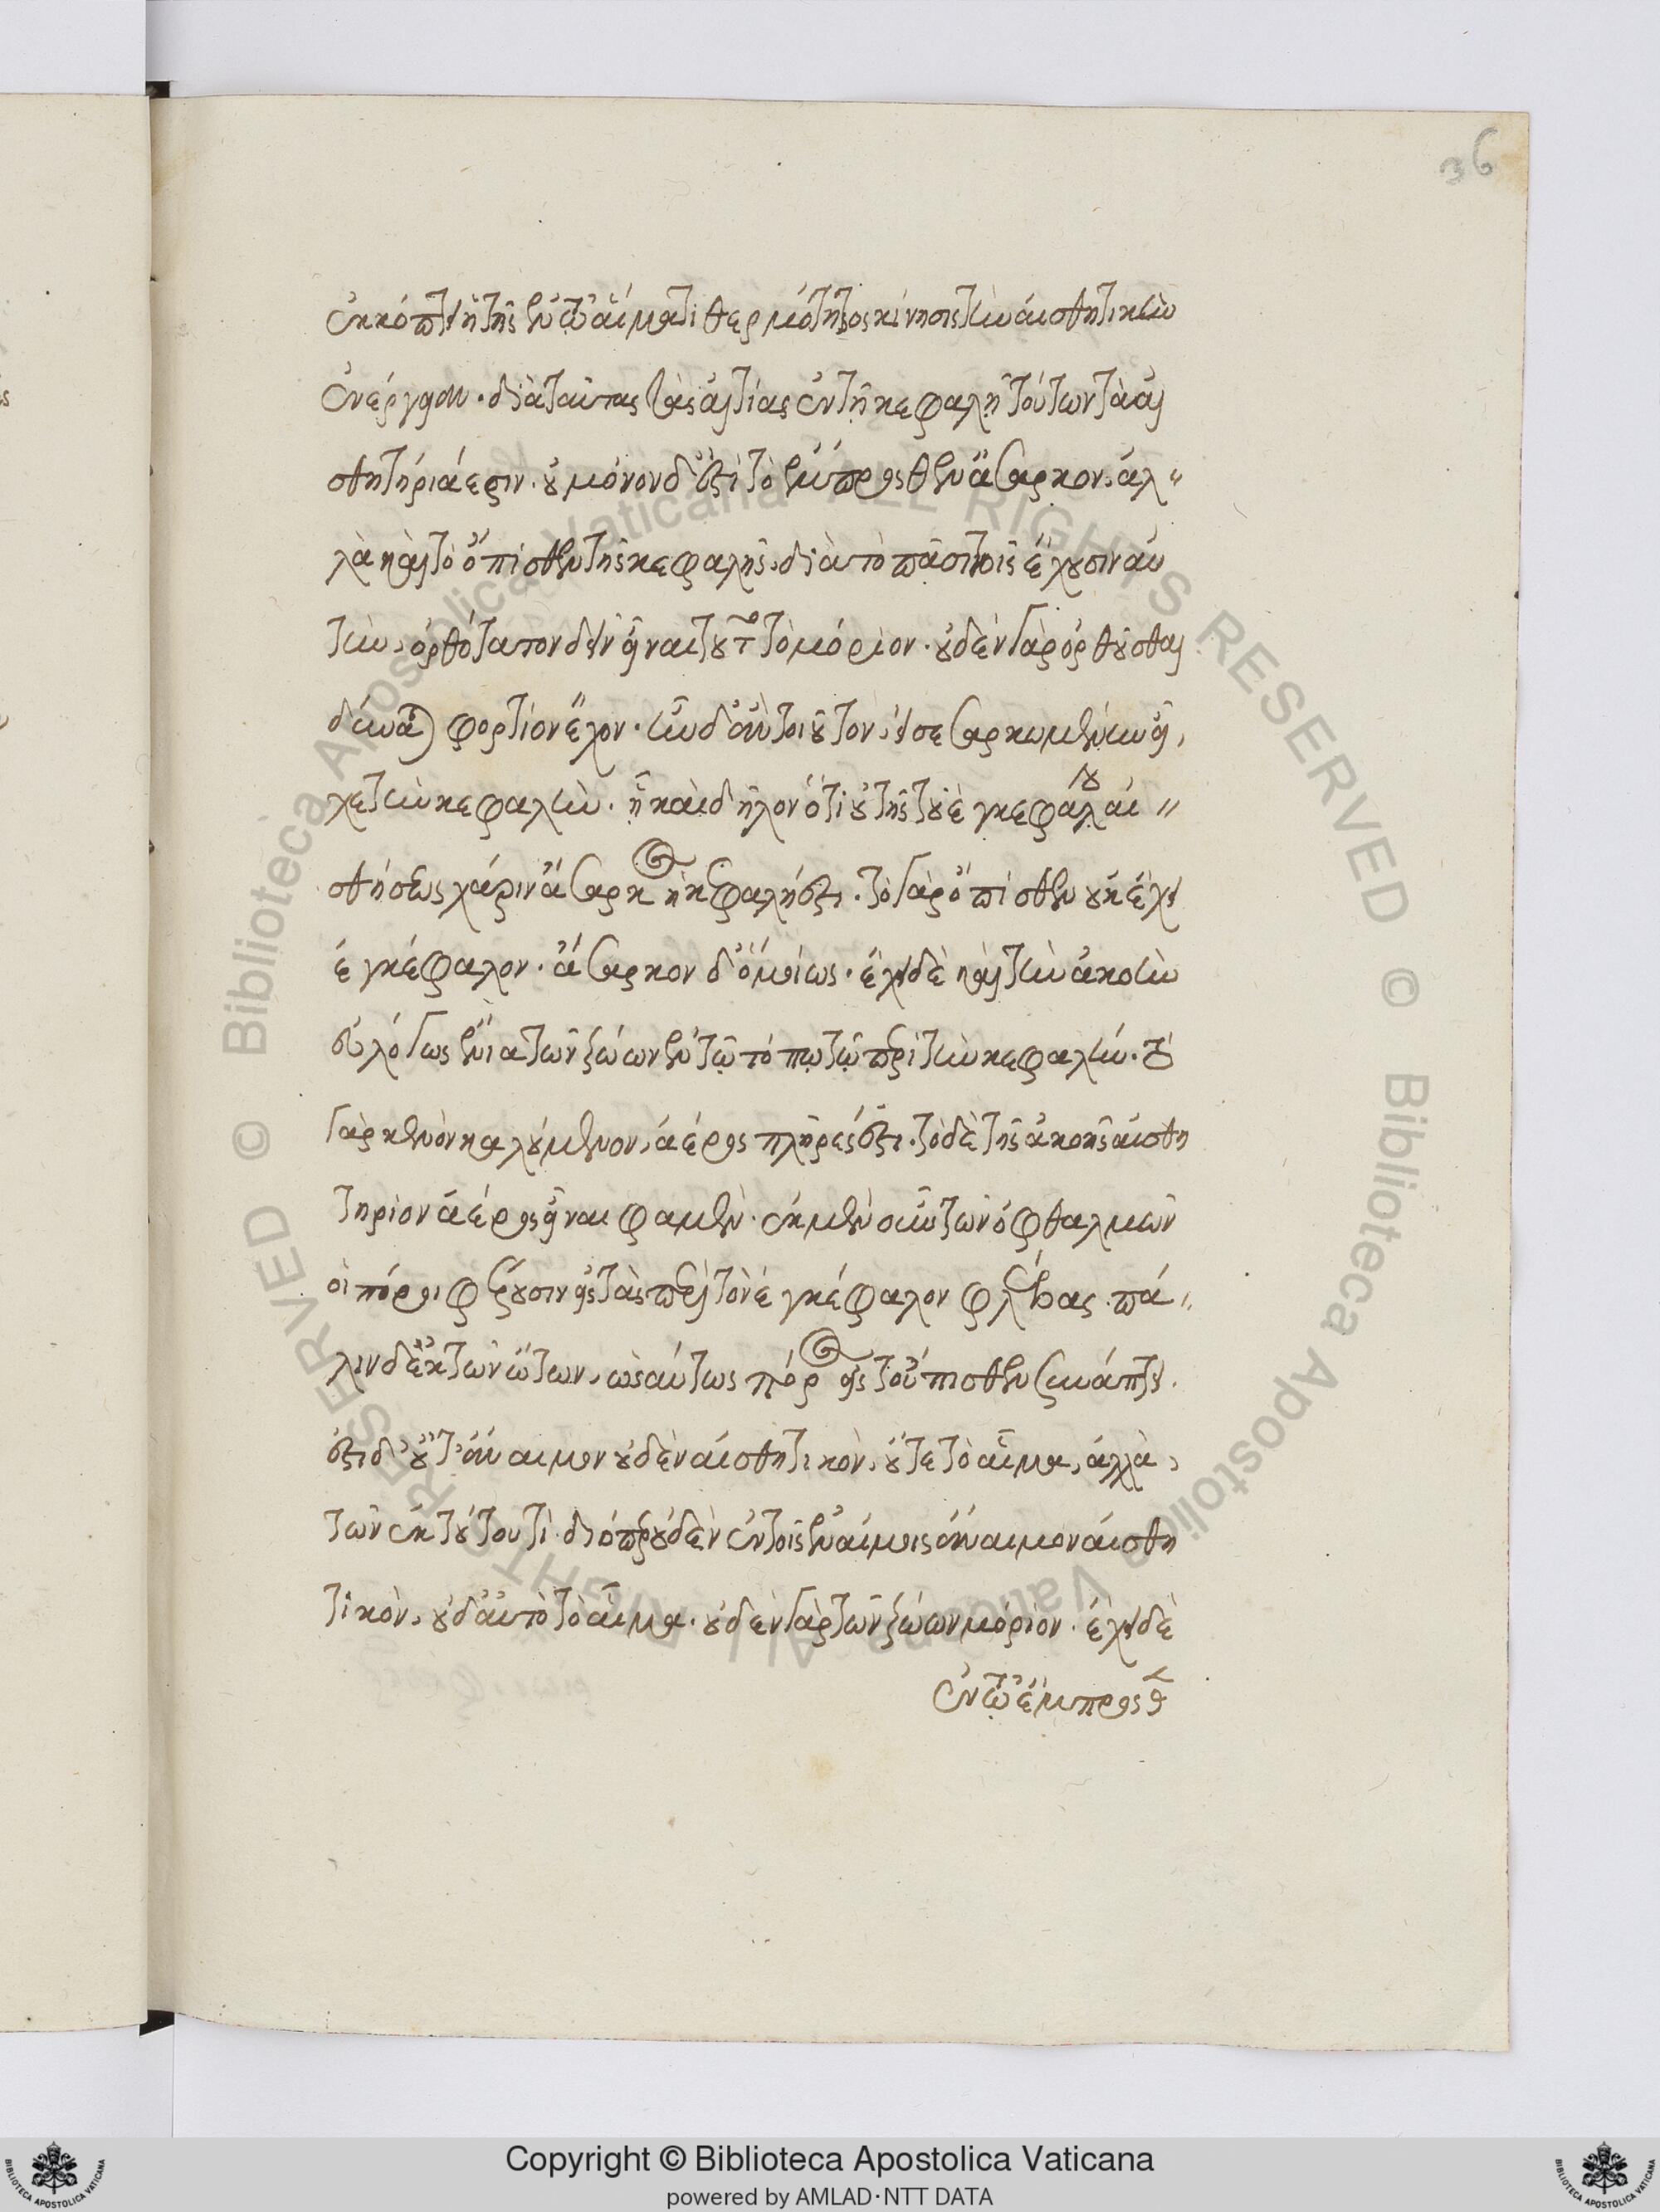 36
ἐκκόπτει ἡ τῆς ἐν τῷ αἵματι θερμότητος κίνησις τὴν αἰσθητικὴν
ἐνέργειαν· διὰ ταύτας τὰς αἰτίας ἐν τῇ κεφαλῇ τούτων τὰ αἰ
σθητήριά ἐστιν. οὐ μόνον δ' ἐστὶ τὸ ἔμπροσθεν ἄσαρκον, ἀλ
λὰ καὶ τὸ ὄπισθεν τῆς κεφαλῆς, διὰ τὸ πᾶσι τοῖς ἔχουσιν αὐ
τὴν, ὀρθότατον δεῖν εἶναι τοῦτο τὸ μόριον. οὐδὲν γὰρ ὀρθοῦσθαι
δύναται φορτίον ἔχον. ἦν δ' ἂν τοιοῦτον, εἰ σεσαρκωμένην εἶ
χε τὴν κεφαλήν. ᾗ καὶ δῆλον ὅτι οὐ τῆς τοῦ ἐγκεφάλου αἰ
σθήσεως χάριν ἄσαρκος ἡ κεφαλή ἐστι. τὸ γὰρ ὄπισθεν οὐκ ἔχει
ἐγκέφαλον. ἄσαρκον δ' ὁμοίως. ἔχει δὲ καὶ τὴν ἀκοὴν
εὐλόγως ἔνια τῶν ζώων ἐν τῷ τόπῳ τῷ περὶ τὴν κεφαλήν. τὸ
γὰρ κενὸν καλούμενον, ἀέρος πλῆρές ἐστι. τὸ δὲ τῆς ἀκοῆς αἰσθη
τήριον ἀέρος εἶναι φαμέν. ἐκ μὲν οὖν τῶν ὀφθαλμῶν
οἱ πόροι φέρουσιν εἰς τὰς περὶ τὸν ἐγκέφαλον φλέβας. πά
λιν δ' ἐκ τῶν ὤτων, ὡσαύτως πόρος εἰς τοὔπισθεν συνάπτει.
ἔστι δ' οὔτ' ἄναιμον οὐδὲν αἰσθητικὸν, οὔτε τὸ αἷμα, ἀλλὰ
τῶν ἐκ τούτου τί. διόπερ οὐδὲν ἐν τοῖς ἐναίμοις ἄναιμον αἰσθη
τικὸν, οὐδ' αὐτὸ τὸ αἷμα. οὐδὲν γὰρ τῶν ζώων μόριον. ἔχει δὲ
ἐν τῷ ἔμπροσθεν
Copyright © Biblioteca Apostolica Vaticana
powered by AMLAD·NTT DATA